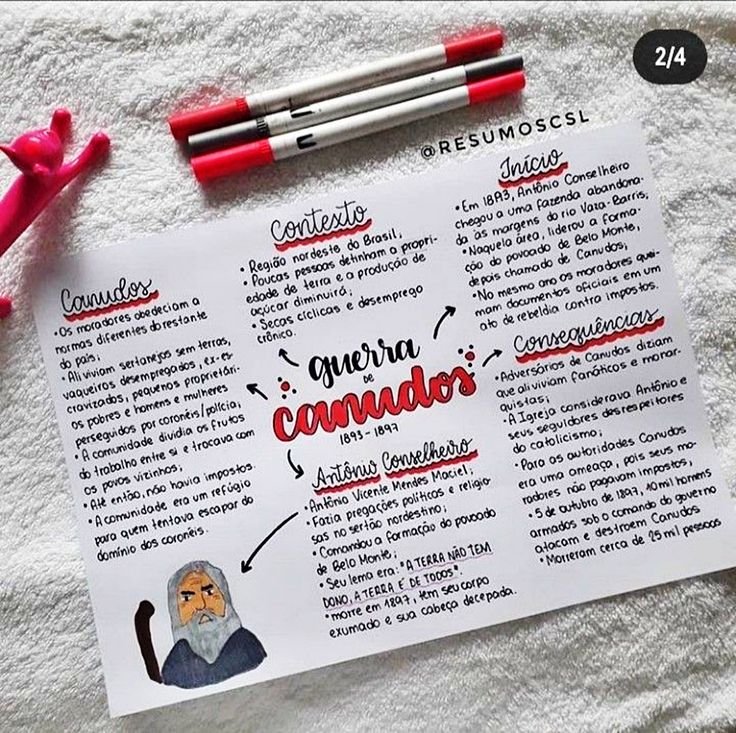 2/4
@RESUMOSCSL
guerra
DE
canudos
1893 - 1897
Contexto
• Região nordeste do Brasil;
• Poucas pessoas detinham a propri-
edade de terra e a produção de
açúcar diminuirá;
• Secas cíclicas e desemprego
crônico.
Início
• Em 1893, Antônio Conselheiro
chegou a uma fazenda abandona-
da às margens do rio Vaza-Barris;
• Naquela área, liderou a forma-
ção do povoado de Belo Monte,
depois chamado de Canudos;
• No mesmo ano os moradores quei-
mam documentos oficiais em um
ato de rebeldia contra impostos.
Canudos
• Os moradores obedeciam a
normas diferentes do restante
do país;
• Ali viviam sertanejos sem terras,
vaqueiros desempregados, ex-es-
cravizados, pequenos proprietári-
os pobres e homens e mulheres
perseguidos por coronéis/polícia;
• A comunidade dividia os frutos
do trabalho entre si e trocava com
os povos vizinhos;
• Até então, não havia impostos.
• A comunidade era um refúgio
para quem tentava escapar do
domínio dos coronéis.
Antônio Conselheiro
• Antônio Vicente Mendes Maciel;
• Fazia pregações políticas e religio-
sas no sertão nordestino;
• Comandou a formação do povoado
de Belo Monte;
• Seu lema era: "A TERRA NÃO TEM
DONO, A TERRA É DE TODOS".
• morre em 1897, tem seu corpo
exumado e sua cabeça decepada.
Consequências
• Adversários de Canudos diziam
que ali viviam fanáticos e monar-
quistas;
• A Igreja considerava Antônio e
seus seguidores desrespeitores
do catolicismo;
• Para as autoridades Canudos
era uma ameaça, pois seus mo-
radores não pagavam impostos;
• 5 de outubro de 1897, 10 mil homens
armados sob o comando do governo
atacam e destroem Canudos
• Morreram cerca de 25 mil pessoas